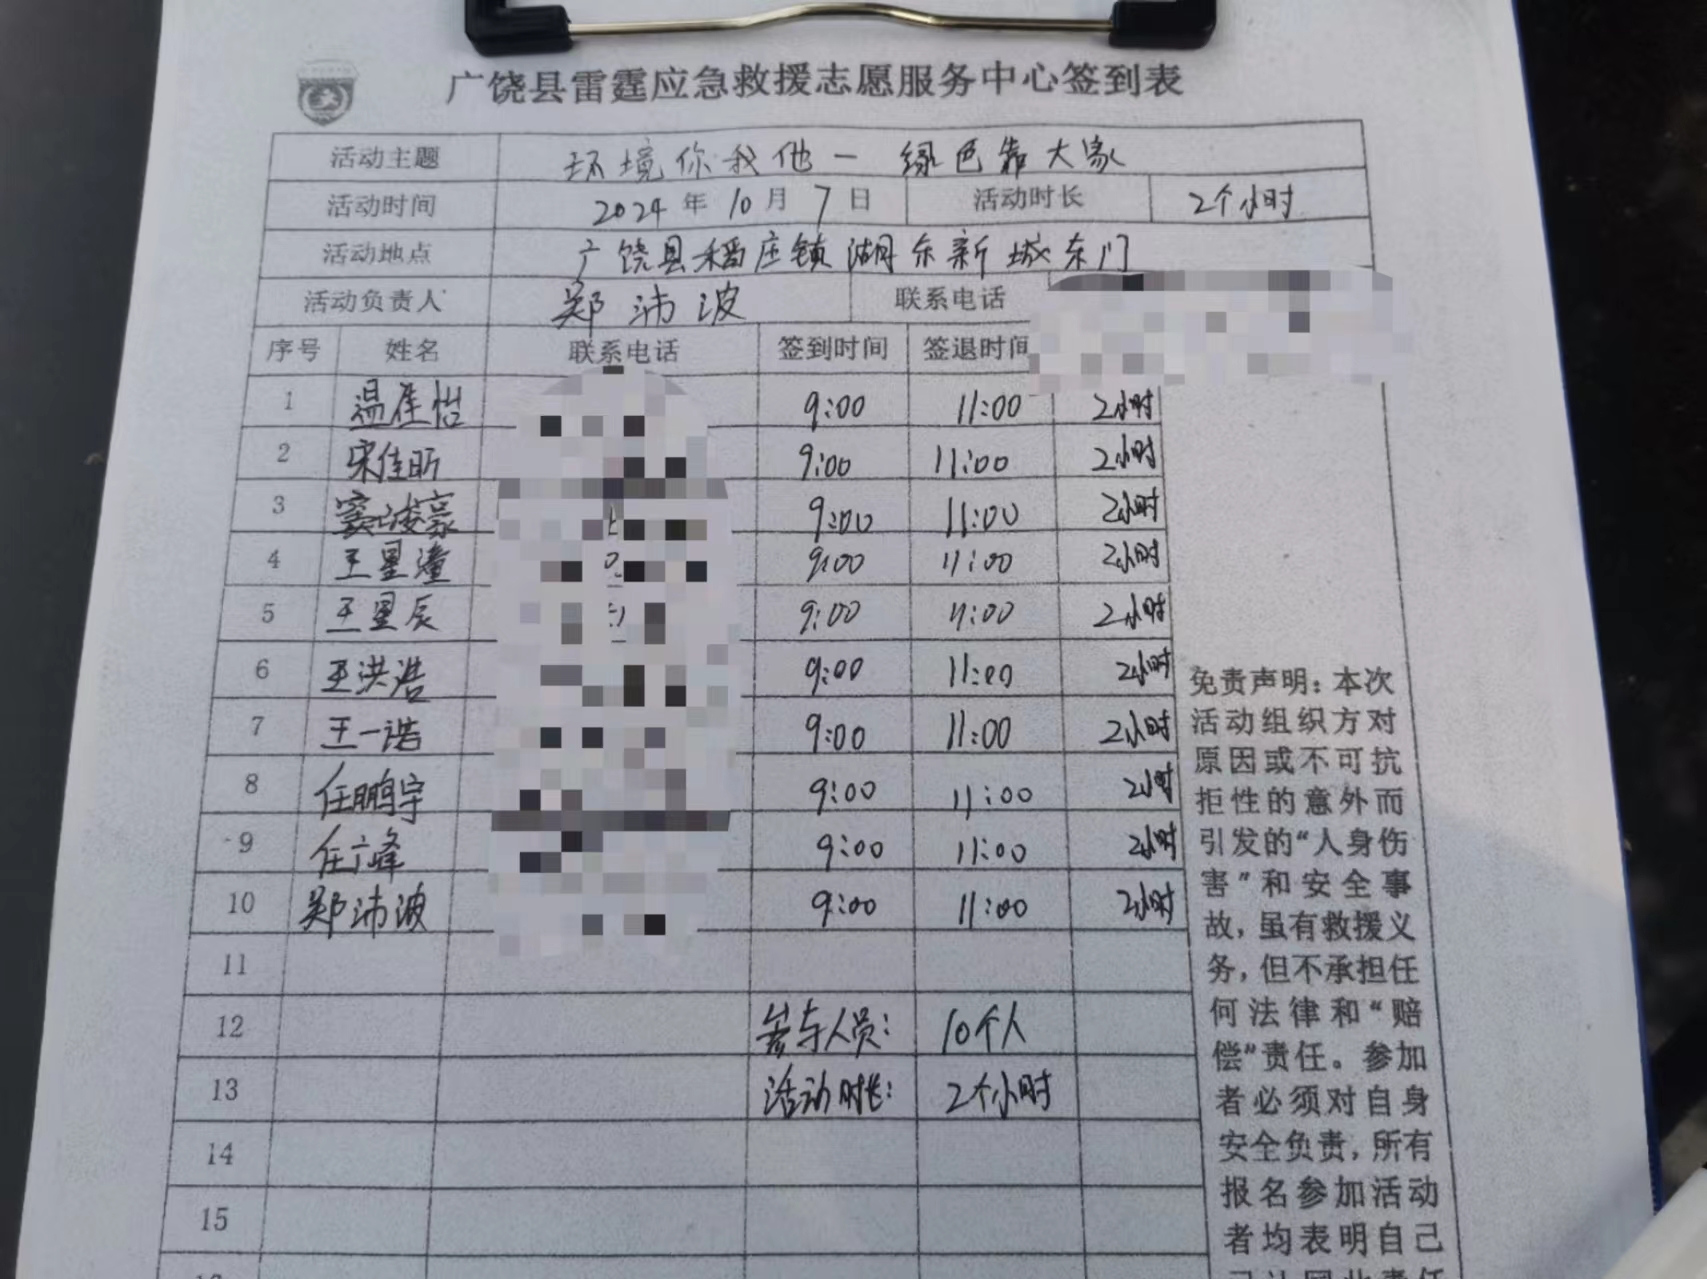 广饶县雷霆应急救援志愿服务中心签到表
活动主题 环境你我他一 绿色靠大家
活动时间 2024年10月7日 活动时长 2个小时
活动地点 广饶县稻庄镇湖东新城东门
活动负责人 郑沛波 联系电话
序号 姓名 联系电话 签到时间 签退时间
1 温佳怡 9:00 11:00 2小时
2 宋佳昕 9:00 11:00 2小时
3 窦浚豪 9:00 11:00 2小时
4 王星潼 9:00 11:00 2小时
5 王星辰 9:00 11:00 2小时
6 王洪浩 9:00 11:00 2小时
7 王一诺 9:00 11:00 2小时
8 任鹏宇 9:00 11:00 2小时
9 任广峰 9:00 11:00 2小时
10 郑沛波 9:00 11:00 2小时
11
12 参与人员: 10个人
13 活动时长: 2个小时
14
15
免责声明：本次
活动组织方对
原因或不可抗
拒性的意外而
引发的“人身伤
害”和安全事
故，虽有救援义
务，但不承担任
何法律和“赔
偿”责任。参加
者必须对自身
安全负责，所有
报名参加活动
者均表明自己